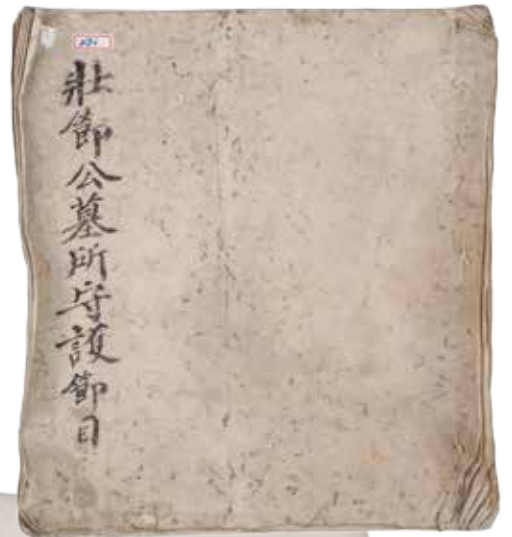 壯節公墓所守護節目